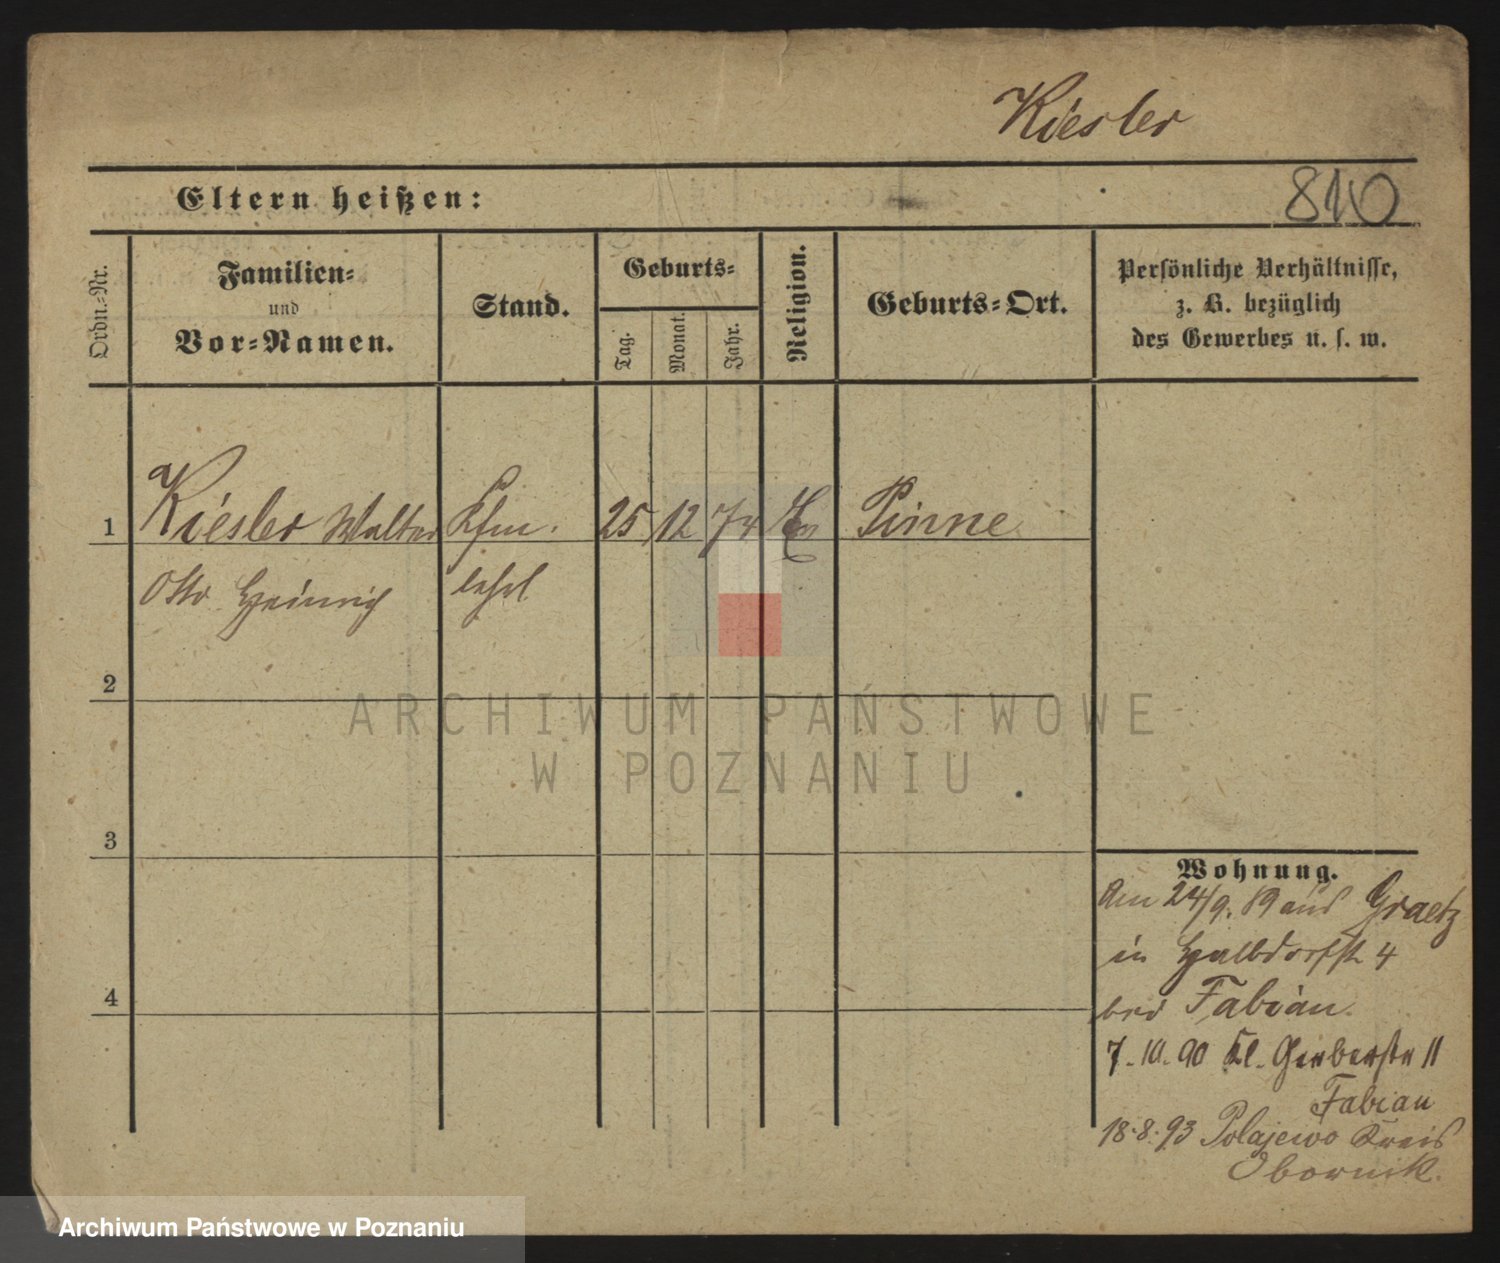 Kiesler
Eltern heißen:
810
Ordn.-Nr.
Familien-
und
Vor-Namen.
Stand.
Geburts-
Tag.
Monat.
Jahr.
Religion.
Geburts-Ort.
Persönliche Verhältnisse,
z. B. bezüglich
des Gewerbes u. s. w.
1 Kiesler Walter Kfm. 25 12 74 Ev Pinne
Otto Heinrich lehrl
2
3
4
ARCHIWUM PAŃSTWOWE
W POZNANIU
Wohnung.
Am 24/9. 89 aus Graetz
in Halbdorfstr 4
bei Fabian.
7. 10. 90 Kl. Gerberstr 11
Fabian
18.8.93 Polajewo Kreis
Obornik.
Archiwum Państwowe w Poznaniu